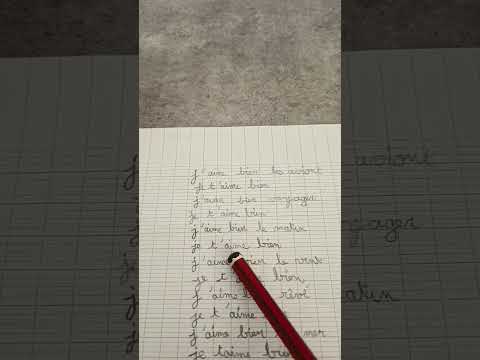 j'aime bien les avions
je t'aime bien
j'aime bien voyager
je t'aime bien
j'aime bien le matin
je t'aime bien
j'aime bien le vent
je t'aime bien
j'aime rêvé
je t'aime
j'aime bien mer
je t'aime bien